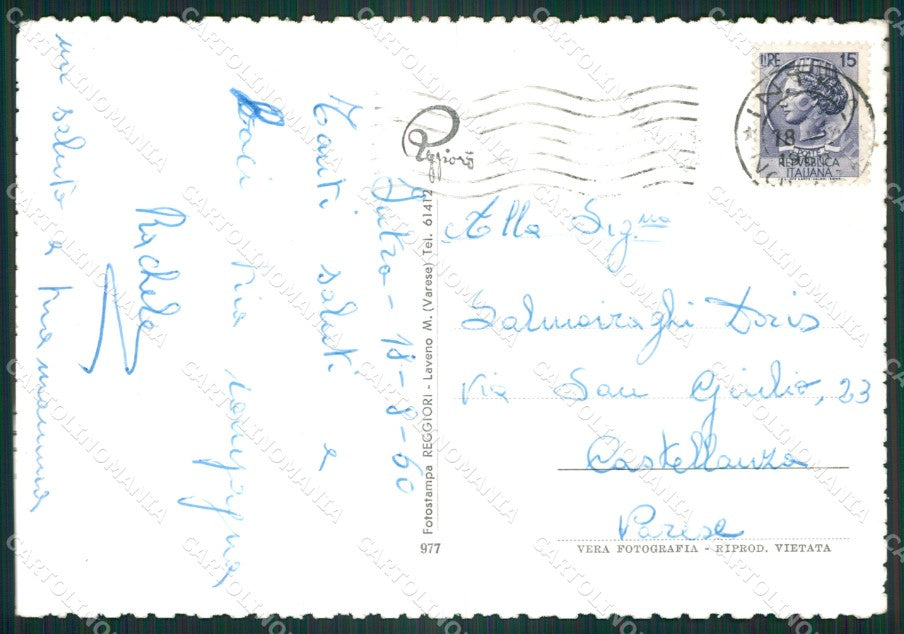 Intra - 18-8-60
Tanti saluti e
Baci tua compagna
Rachele
un saluto a tua mamma
Reggiori
Fotostampa REGGIORI - Laveno M. (Varese) Tel. 61412
977
LIRE 15
POSTE
REPVBBLICA
ITALIANA
18
Alla Sig.na
Salmoiraghi Doris
Via San Giulio, 23
Castellanza
Varese
VERA FOTOGRAFIA - RIPROD. VIETATA
CARTOLINOMANIA